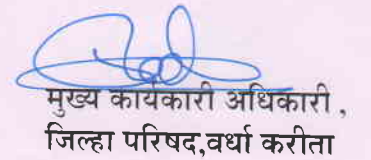 मुख्य कार्यकारी अधिकारी ,
जिल्हा परिषद,वर्धा करीता